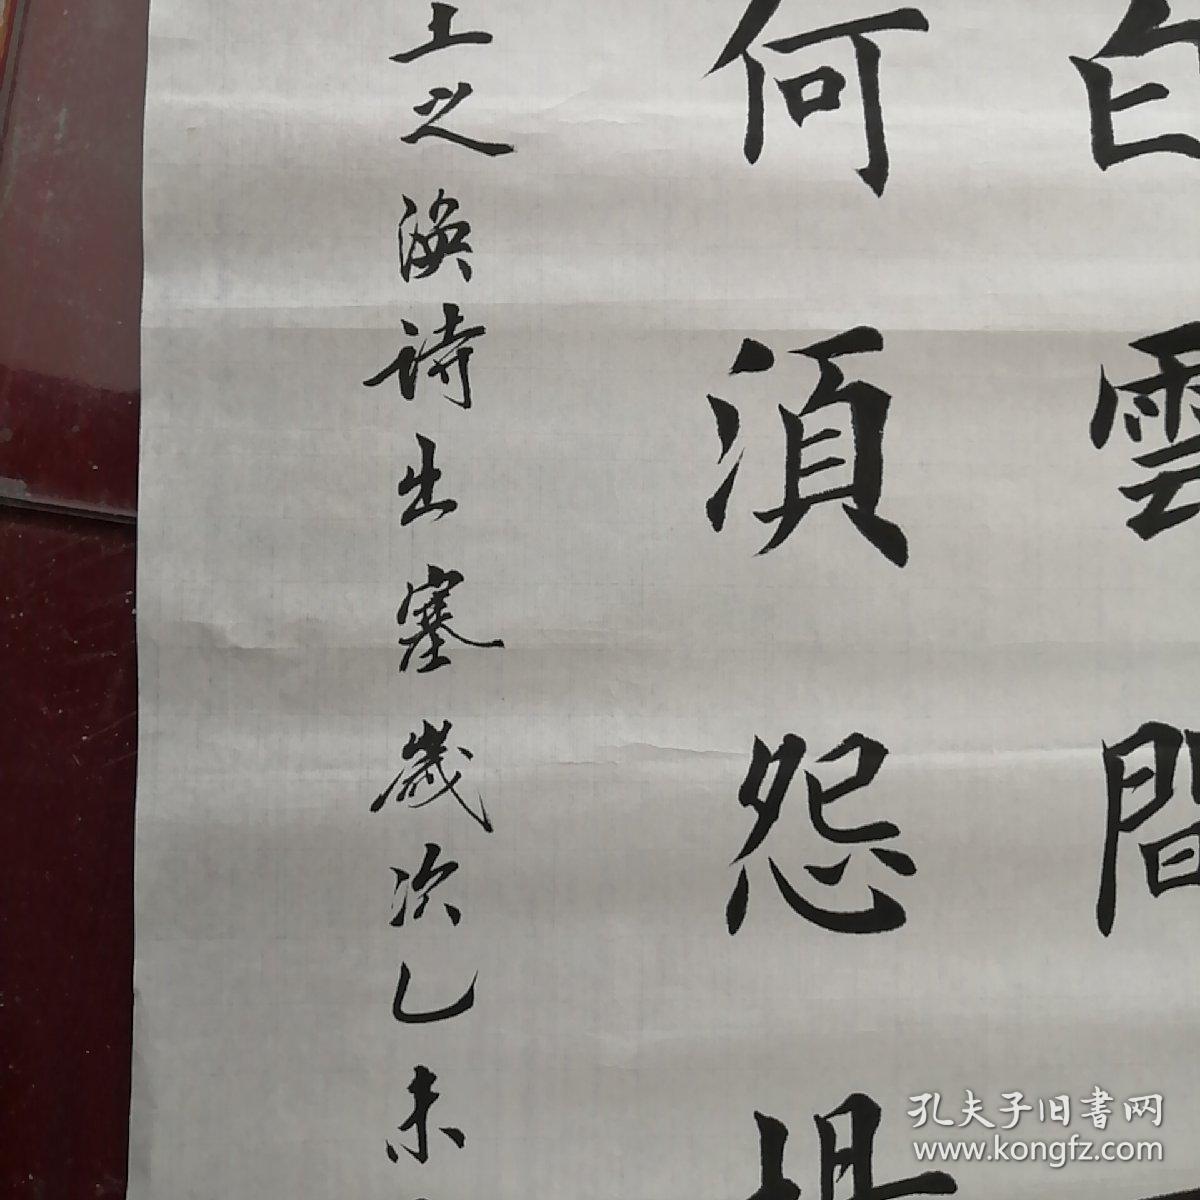 白雲間
何須怨
王之渙詩出塞歲次乙未
孔夫子旧書网
www.kongfz.com